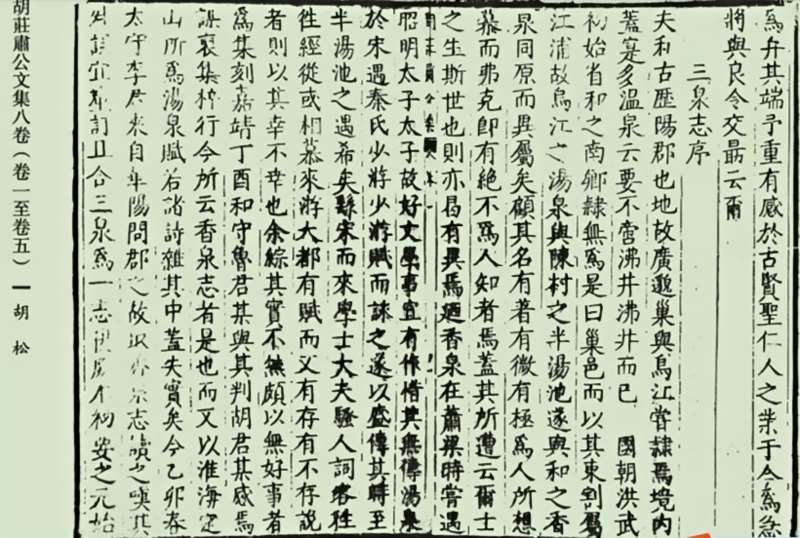 為弁其端予重有感於古賢聖仁人之業于今為急
將與良令交勗云爾
三泉志序
夫和古歷陽郡也地故廣邈巢與烏江嘗隸焉境内
蓋寔多溫泉云要不啻沸井沸井而已 國朝洪武
初始省和之南鄉隸無為是曰巢邑而以其東割屬
江浦故烏江之湯泉與陳村之半湯池遂與和之香
泉同原而異屬矣顧其名有著有微有極為人所想
慕而弗克即有絶不為人知者焉蓋其所遭云爾士
之生斯世也則亦曷有異焉廼香泉在蕭梁時嘗遇
昭明太子太子故好文學事宜有作惜其無傳湯泉
於宋遇秦氏少游少游賦而詠之遂以盛傳其時至
半湯池之遇希矣繇宋而來學士大夫騷人詞客往
徃經從或相慕來游大都有賦而又有存有不存說
者則以其幸不幸也余綜其實不無頗以無好事者
為集刻嘉靖丁酉和守魯君某與其判胡君某感焉
諏裒集梓行今所云香泉志者是也而又以淮海定
山所為湯泉賦若諸詩雜其中蓋失實矣今乙卯春
太守李君來自阜陽問郡之故取香泉志讀之嘆其
且合三泉為一志
安之元始
胡莊肅公文集八卷（卷一至卷五） 胡 松